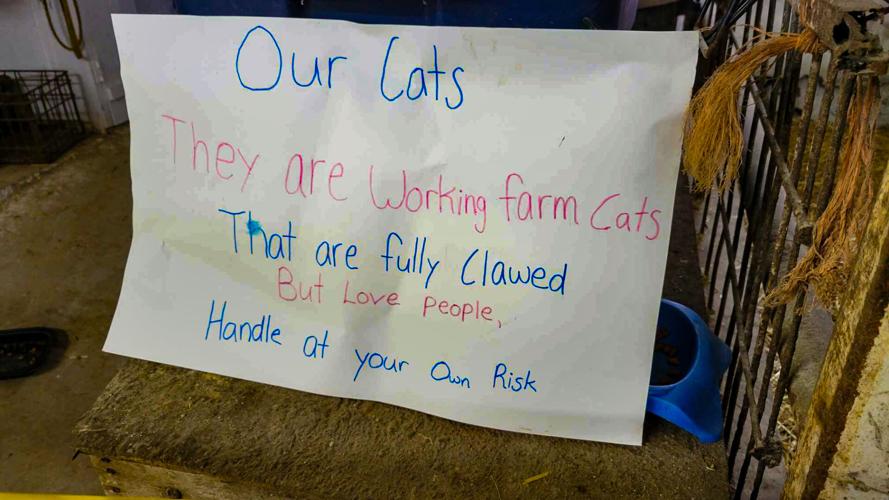 Our Cats
They are Working farm Cats
That are fully Clawed
But Love People,
Handle at your Own Risk